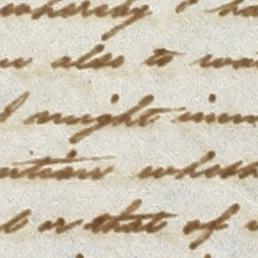 whereby I ha
also to wa
I might imm
ention wheth
or that of